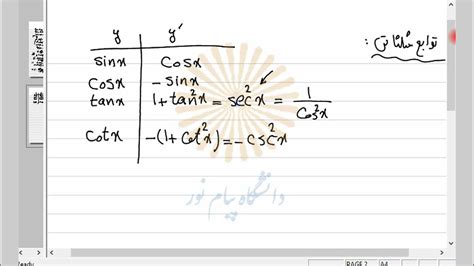 توابع مثلثاتی :
y y'
sinx cosx
cosx - sinx
tanx 1+tan²x = sec²x = 1/cos²x
cotx -(1+cot²x) = -csc²x
دانشگاه پیام نور
Ready PAGE 2 A4